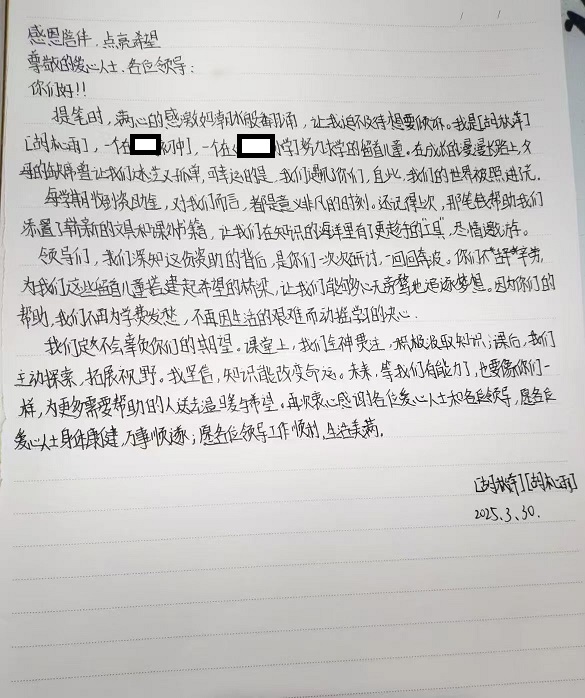 感恩陪伴,点亮希望
尊敬的爱心人士、各位领导:
你们好!!
提笔时,满心的感激如潮水般翻涌,让我迫不及待想要倾诉。我是[胡
[胡松雨],一个在 初中,一个在 小学努力求学的留守儿童。在成长的漫漫长路上,父
母的缺席曾让我们迷茫又孤单,可幸运的是,我们遇见了你们,自此,我们的世界被照进光。
每学期收到资助金,对我们而言,都是意义非凡的时刻。还记得上次,那笔钱帮助我们
添置了崭新的文具和课外书籍,让我们在知识的海洋里有了更趁手的“工具”,尽情遨游。
领导们,我们深知这份资助的背后,是你们一次次研讨,一回回奔波。你们不辞辛劳,
为我们这些留守儿童搭建起希望的桥梁,让我们能够心无旁骛地追逐梦想。因为你们的
帮助,我们不再为学费发愁,不再因生活的艰难而动摇学习的决心。
我们定不会辜负你们的期望。课堂上,我们全神贯注,积极汲取知识;课后,我们
主动探索,拓展视野。我坚信,知识能改变命运。未来,等我们有能力了,也要像你们一
样,为更多需要帮助的人送去温暖与希望。再次衷心感谢各位爱心人士和各位领导,愿各位
爱心人士身体康健,万事顺遂;愿各位领导工作顺利,生活美满。
[胡 ][胡松雨]
2025.3.30.